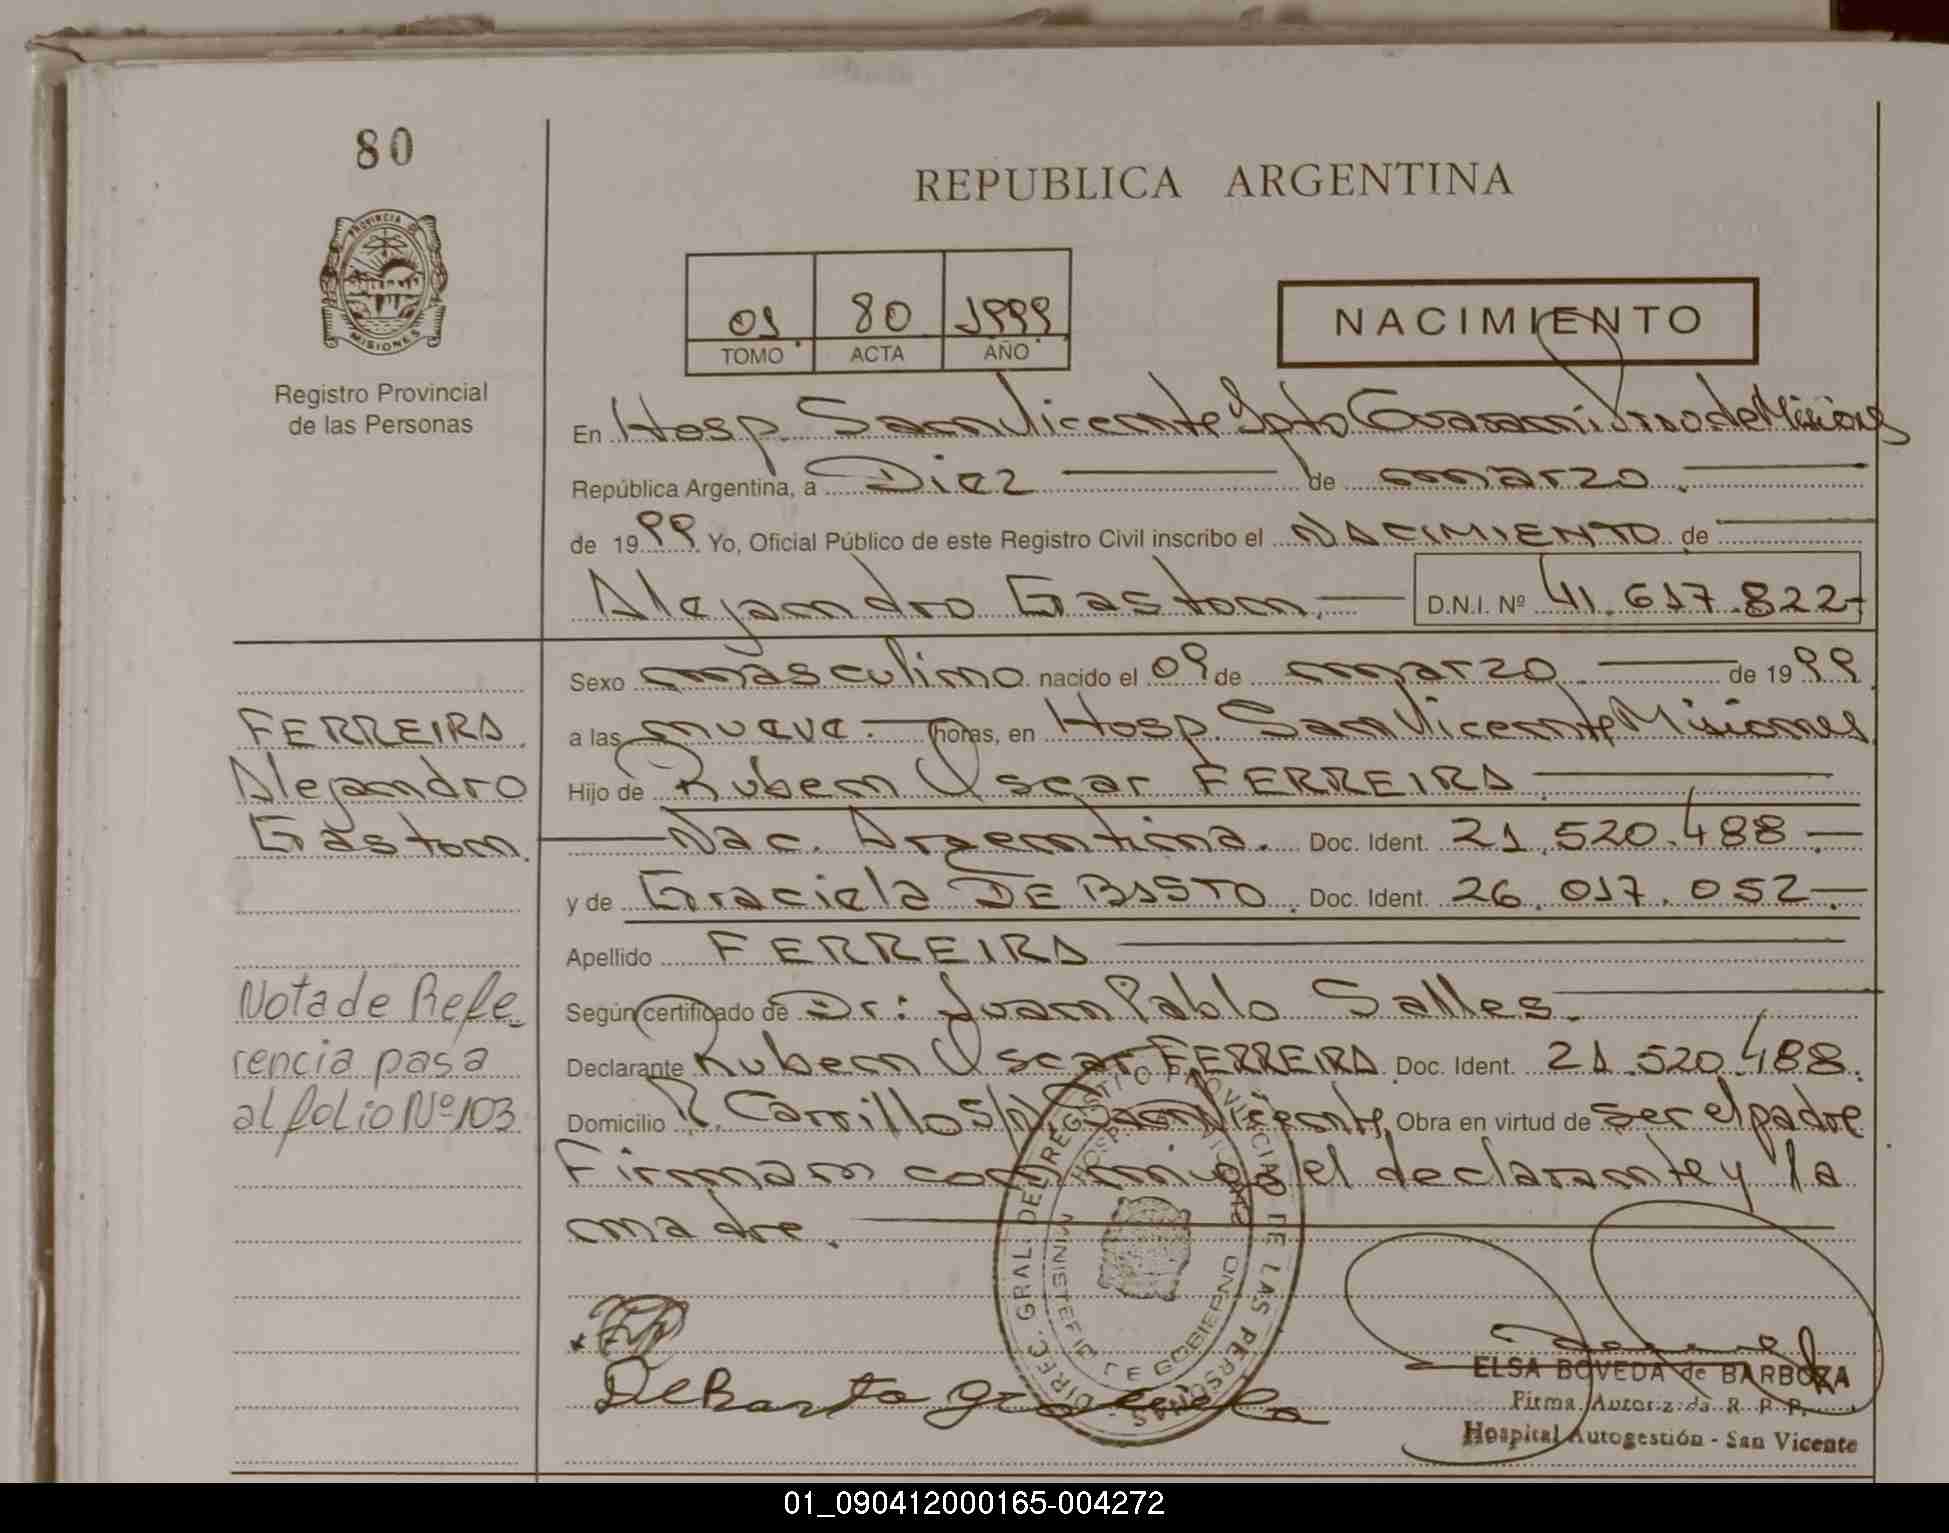 80
REPUBLICA ARGENTINA
PROVINCIA D
MISIONES
Registro Provincial
de las Personas
01 80 1999
TOMO ACTA AÑO
NACIMIENTO
En Hosp. San Vicente Dpto Guarani Prov de Misiones
República Argentina, a Diez de marzo.
de 1999 Yo, Oficial Público de este Registro Civil inscribo el NACIMIENTO de
Alejandro Gaston. D.N.I. Nº 41.617.822-
Sexo masculino nacido el 09 de marzo. de 1999
a las nueve. horas, en Hosp. San Vicente Misiones
Hijo de Ruben Oscar FERREIRA.
Nac. Argentina. Doc. Ident. 21.520.488.-
y de Graciela DE BASTO. Doc. Ident. 26.017.052.-
Apellido FERREIRA
Según certificado de Dr: Juan Pablo Salles.
Declarante Ruben Oscar FERREIRA. Doc. Ident. 21.520.488.
Domicilio R. Carrillo S/N. San Vicente, Obra en virtud de ser el padre
Firman conmigo el declarante y la
madre.
FERREIRA.
Alejandro
Gaston.
Nota de Refe-
rencia pasa
al folio Nº 103
DIREC. GRAL. DEL REGISTRO PROVINCIAL DE LAS PERSONAS
MINISTERIO DE GOBIERNO
De Basto Graciela
ELSA BOVEDA de BARBOZA
Firma Autorizada R. P. P.
Hospital Autogestión - San Vicente
01_090412000165-004272